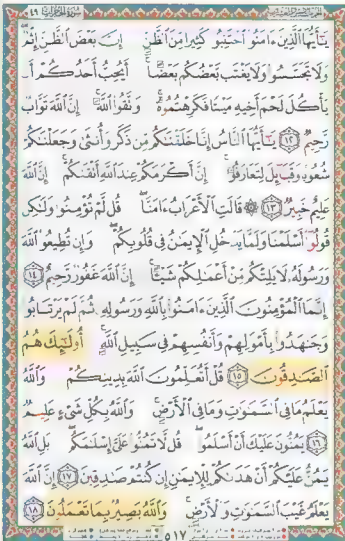 سورة الحجرات ٤٩
يَـٰٓأَيُّهَا ٱلَّذِينَ ءَامَنُوا۟ ٱجْتَنِبُوا۟ كَثِيرًا مِّنَ ٱلظَّنِّ إِنَّ بَعْضَ ٱلظَّنِّ إِثْمٌ
وَلَا تَجَسَّسُوا۟ وَلَا يَغْتَب بَّعْضُكُم بَعْضًا أَيُحِبُّ أَحَدُكُمْ أَن
يَأْكُلَ لَحْمَ أَخِيهِ مَيْتًا فَكَرِهْتُمُوهُ وَٱتَّقُوا۟ ٱللَّهَ إِنَّ ٱللَّهَ تَوَّابٌ
رَّحِيمٌ ١٢ يَـٰٓأَيُّهَا ٱلنَّاسُ إِنَّا خَلَقْنَـٰكُم مِّن ذَكَرٍ وَأُنثَىٰ وَجَعَلْنَـٰكُمْ
شُعُوبًا وَقَبَآئِلَ لِتَعَارَفُوٓا۟ إِنَّ أَكْرَمَكُمْ عِندَ ٱللَّهِ أَتْقَىٰكُمْ إِنَّ ٱللَّهَ
عَلِيمٌ خَبِيرٌ ١٣ ۞ قَالَتِ ٱلْأَعْرَابُ ءَامَنَّا قُل لَّمْ تُؤْمِنُوا۟ وَلَـٰكِن
قُولُوٓا۟ أَسْلَمْنَا وَلَمَّا يَدْخُلِ ٱلْإِيمَـٰنُ فِى قُلُوبِكُمْ وَإِن تُطِيعُوا۟ ٱللَّهَ
وَرَسُولَهُۥ لَا يَلِتْكُم مِّنْ أَعْمَـٰلِكُمْ شَيْـًٔا إِنَّ ٱللَّهَ غَفُورٌ رَّحِيمٌ ١٤
إِنَّمَا ٱلْمُؤْمِنُونَ ٱلَّذِينَ ءَامَنُوا۟ بِٱللَّهِ وَرَسُولِهِۦ ثُمَّ لَمْ يَرْتَابُوا۟
وَجَـٰهَدُوا۟ بِأَمْوَٰلِهِمْ وَأَنفُسِهِمْ فِى سَبِيلِ ٱللَّهِ أُو۟لَـٰٓئِكَ هُمُ
ٱلصَّـٰدِقُونَ ١٥ قُلْ أَتُعَلِّمُونَ ٱللَّهَ بِدِينِكُمْ وَٱللَّهُ
يَعْلَمُ مَا فِى ٱلسَّمَـٰوَٰتِ وَمَا فِى ٱلْأَرْضِ وَٱللَّهُ بِكُلِّ شَىْءٍ عَلِيمٌ
١٦ يَمُنُّونَ عَلَيْكَ أَنْ أَسْلَمُوا۟ قُل لَّا تَمُنُّوا۟ عَلَىَّ إِسْلَـٰمَكُم بَلِ ٱللَّهُ
يَمُنُّ عَلَيْكُمْ أَنْ هَدَىٰكُمْ لِلْإِيمَـٰنِ إِن كُنتُمْ صَـٰدِقِينَ ١٧ إِنَّ ٱللَّهَ
يَعْلَمُ غَيْبَ ٱلسَّمَـٰوَٰتِ وَٱلْأَرْضِ وَٱللَّهُ بَصِيرٌۢ بِمَا تَعْمَلُونَ ١٨
٥١٧